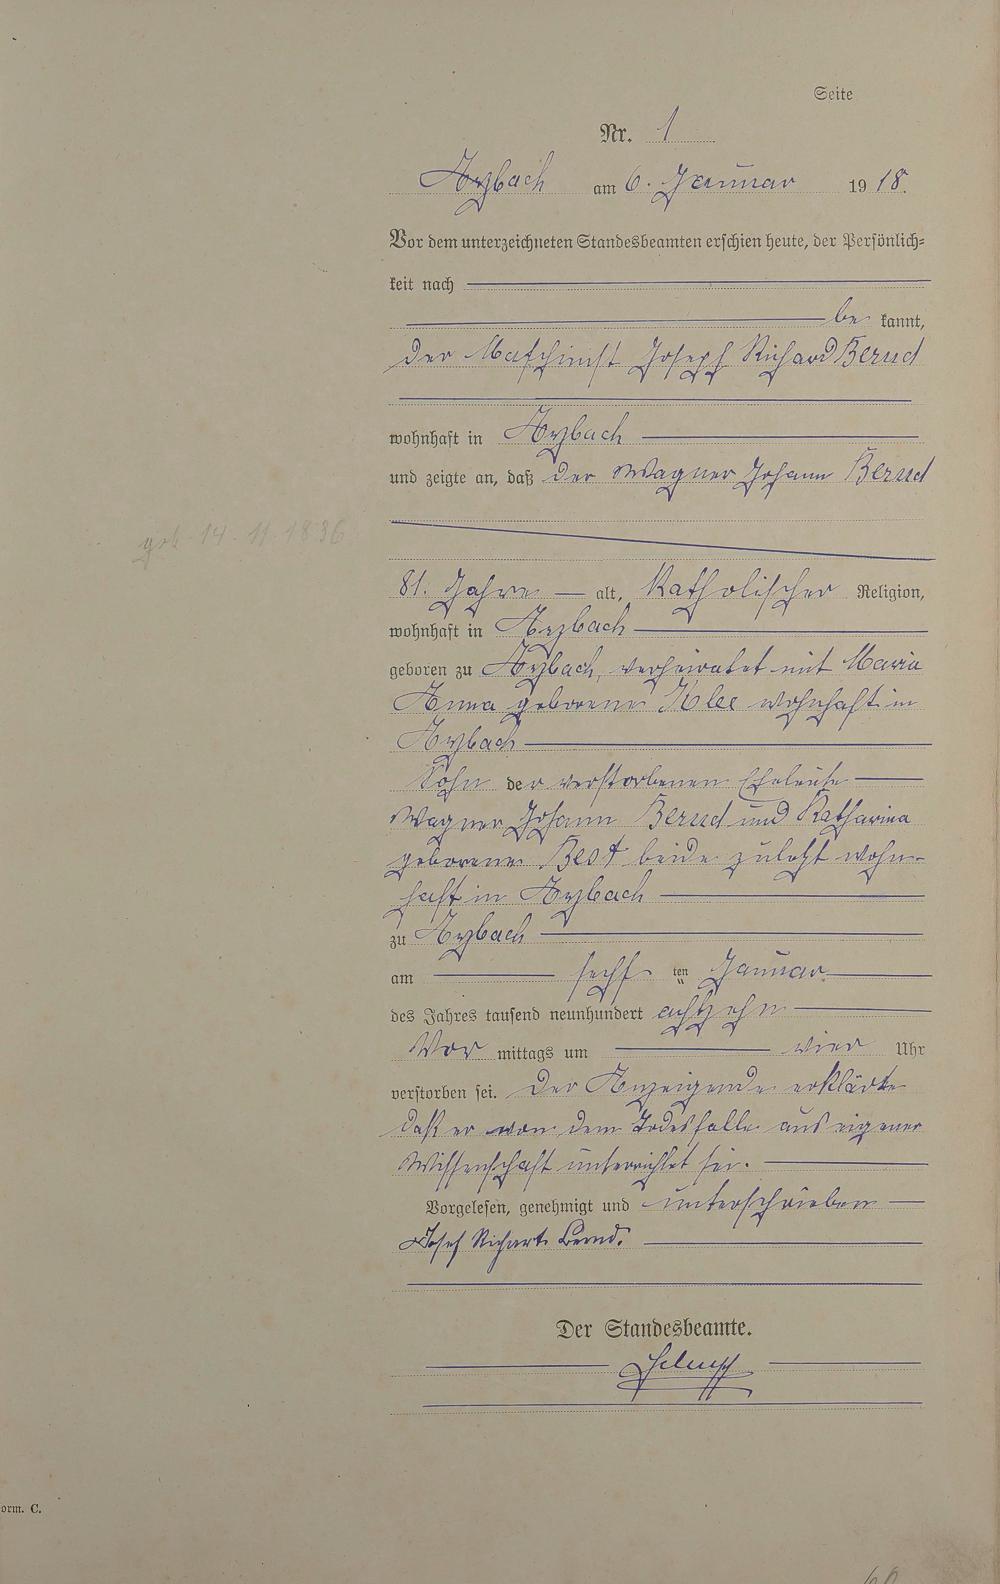 Seite
Nr. 1
Arzbach am 6. Januar 1918.
Vor dem unterzeichneten Standesbeamten erschien heute, der Persönlich=
keit nach
be kannt,
der Maschinist Joseph Richard Bernd
wohnhaft in Arzbach
und zeigte an, daß der Wagner Johann Bernd
geb. 14. 11. 1836
81. Jahre alt, Katholischer Religion,
wohnhaft in Arzbach
geboren zu Arzbach, verheiratet mit Maria
Anna geborene Klee wohnhaft in
Arzbach
Sohn der verstorbenen Eheleute
Wagner Johann Bernd und Katharina
geborene Best beide zuletzt wohn-
haft in Arzbach
zu Arzbach
am sechs ten Januar
des Jahres tausend neunhundert achtzehn
Vor mittags um vier Uhr
verstorben sei. Der Anzeigende erklärte
daß er von dem Todesfalle aus eigener
Wissenschaft unterrichtet sei.
Vorgelesen, genehmigt und unterschrieben
Josef Richart Bernd.
Der Standesbeamte.
orm. C.